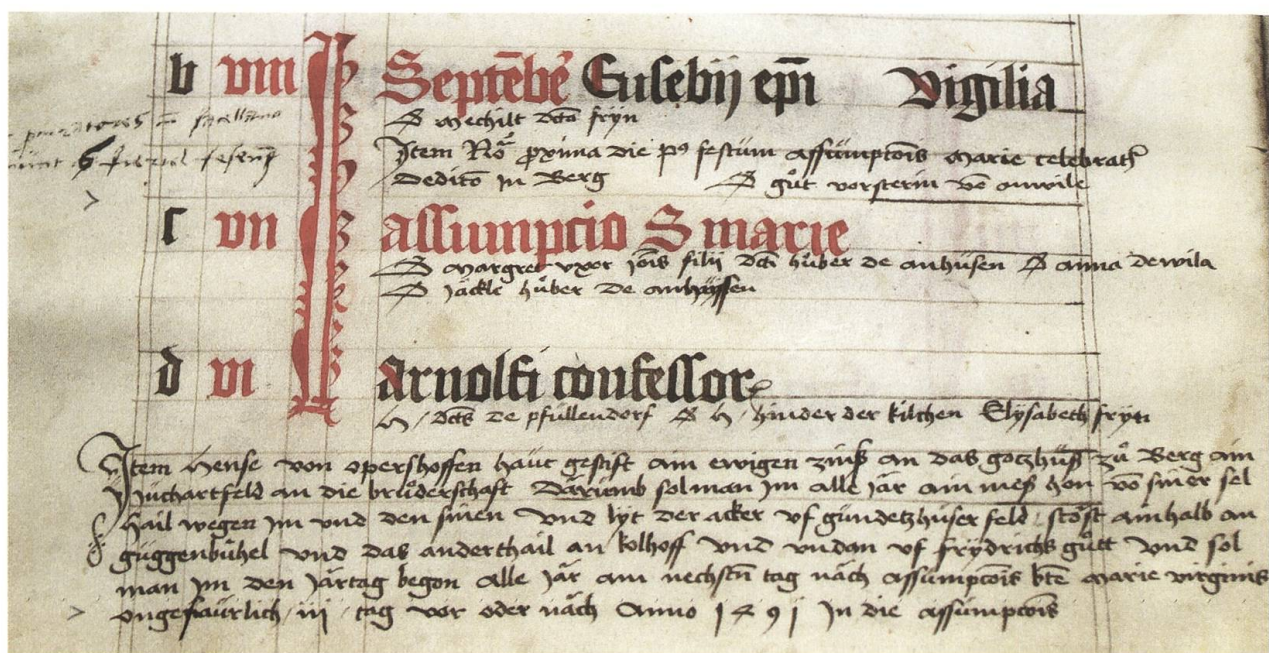 b viii Septēbē Eusebij epī Vigilia
Mechilt dcta fryn
Item Ro proxima die p9 festum assumptōis marie celebrat
Deditō in Berg gůt vorsterin vō anwile
c vii assumpcio S marie
margret vxor joīs filij dcti hůber de anhusen anna de wila
jäckle hůber de anhussen
d vi Arnolfi confessor
H dcts de pfullendorf H hinder der kilchen Elysabeth fryn
Item Hense von opershoffen haut gestift ain ewigen zinß an das goczhuß zů Berg ain
Juchartfeld an die brůderschaft Darumb sol man im alle jar ain meß hon vō siner sel
hail wegen im vnd den sinen vnd lyt der acker vf gundetzhuser feld stost ainhalb an
guggenbühel vnd das anderthail an kolhoff vnd vndan vf frydrichs gůtt vnd sol
man im den jartag began alle jar am nechstn tag näch assumpcōis btē marie virginis
vngefaurlich iii tag vor oder näch Anno 1491 in die assumpcōis